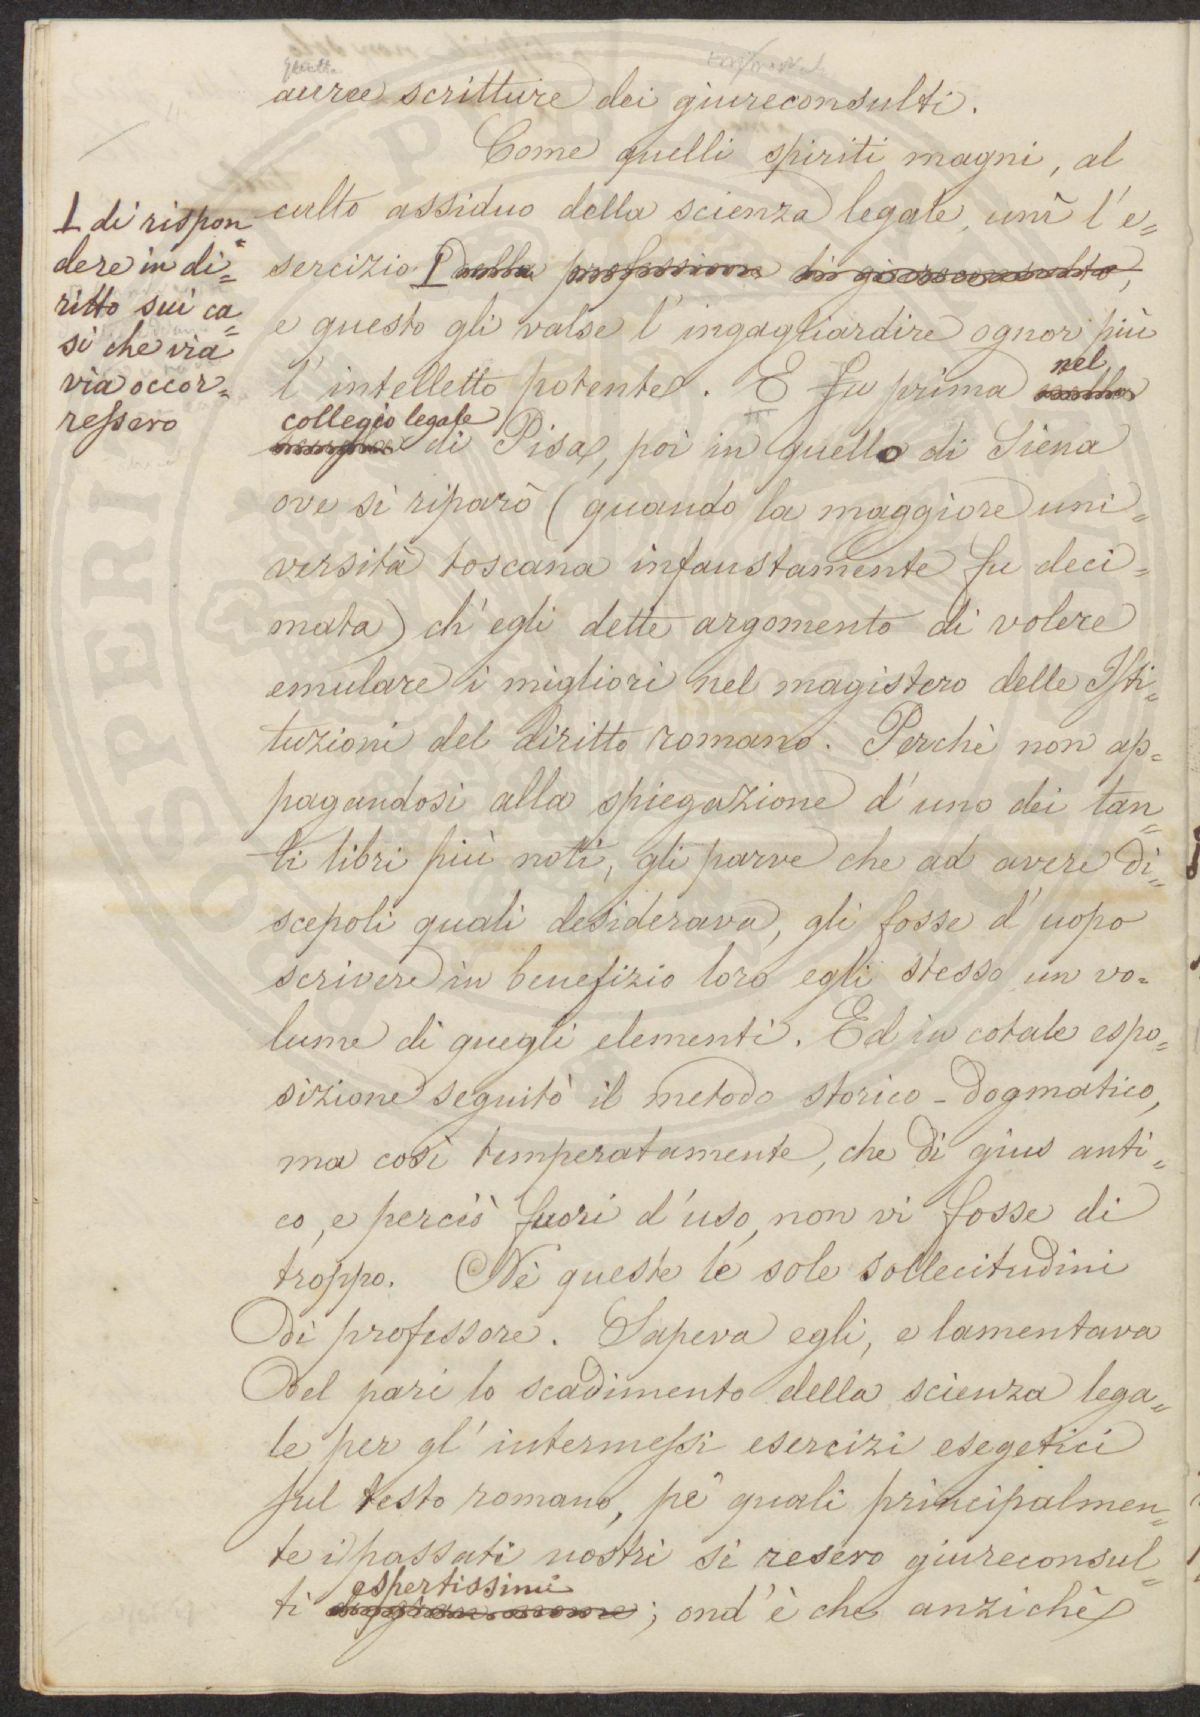 aurce scritture dei giureconsulti.
Come quelli spiriti magni, al
culto assiduo della scienza legale, unì l'e=
sercizio I nella professione di giureconsulto,
e questo gli valse l'ingagliardire ognor più
l'intelletto potente. E fu prima nel
collegio legale di Pisa, poi in quello di Siena
ove si riparò (quando la maggiore uni=
versità toscana infaustamente fu deci=
mata) ch'egli dette argomento di volere
emulare i migliori nel magistero delle Isti=
tuzioni del diritto romano. Perchè non ap=
pagandosi alla spiegazione d'uno dei tan=
ti libri più noti, gli parve che ad avere di=
scepoli quali desiderava, gli fosse d'uopo
scrivere in benefizio loro egli stesso un vo=
lume di quegli elementi. Ed in cotale espo=
sizione seguitò il metodo storico-dogmatico,
ma così temperatamente, che di gius anti=
co, e perciò fuori d'uso, non vi fosse di
troppo. Nè queste le sole sollecitudini
di professore. Sapeva egli, e lamentava
del pari lo scadimento della scienza lega=
le per gl'intermessi esercizi esegetici
sul testo romano, pe' quali principalmen=
te i passati nostri si resero giureconsul=
ti espertissimi; ond'è che anzichè
I di rispon
dere in di=
ritto sui ca=
si che via
via occor=
ressero